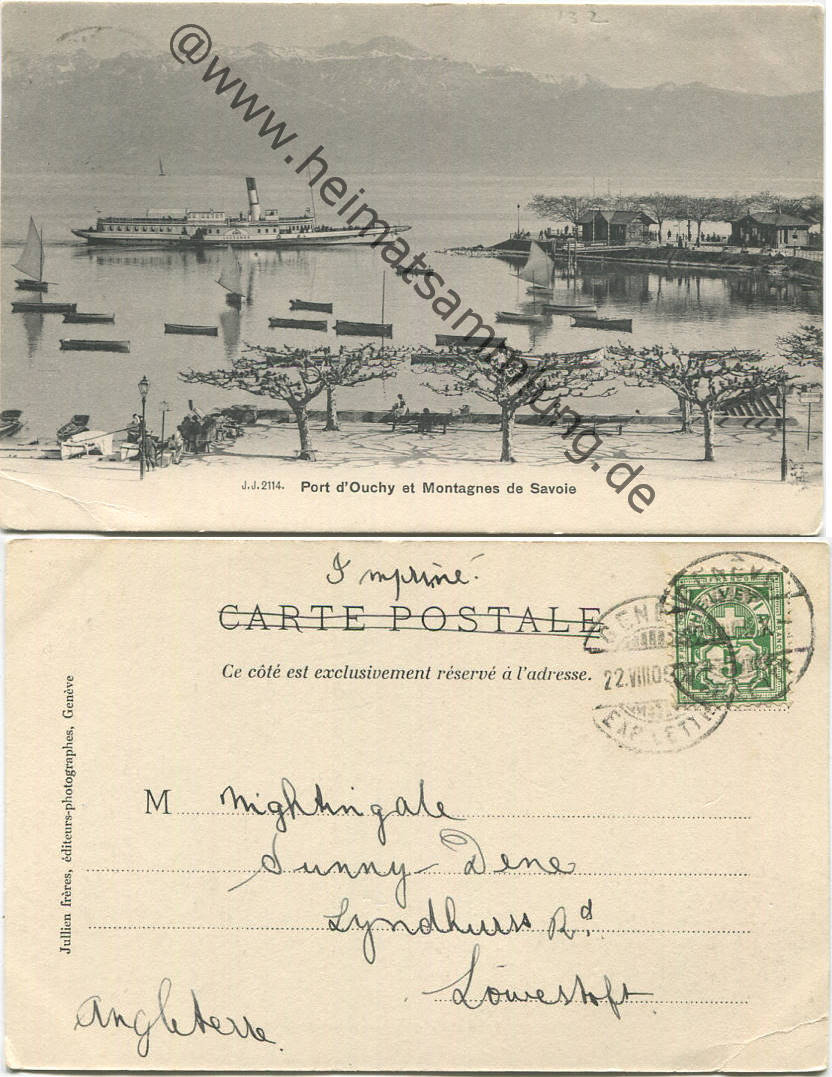 132
@www.heimatsammlung.de
J.J.2114. Port d'Ouchy et Montagnes de Savoie
Imprimé.
CARTE POSTALE
Ce côté est exclusivement réservé à l'adresse.
GENÈVE
22.VIII.05
EXP. LETTR
HELVETIA
5
Jullien frères, éditeurs-photographes, Genève
M Nightingale
Sunny-Dene
Lyndhurst Rd.
Lowestoft
Angleterre.